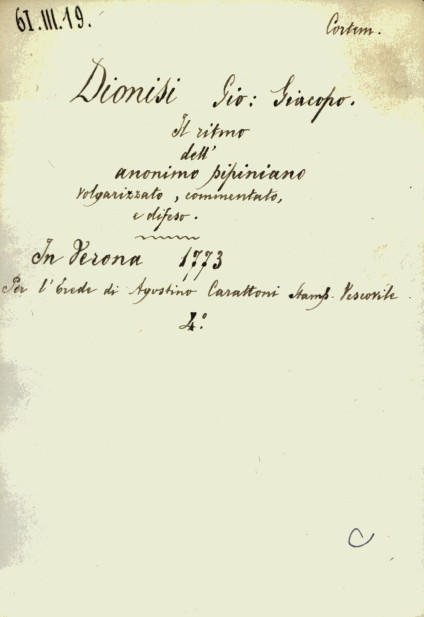 61.III.19.
Cortem.
Dionisi Gio: Giacopo.
Il ritmo
dell'
anonimo pipiniano
volgarizzato, commentato,
e difeso.
In Verona 1773
Per l'Erede di Agostino Carattoni Stamp. Vescovile.
4.°
C